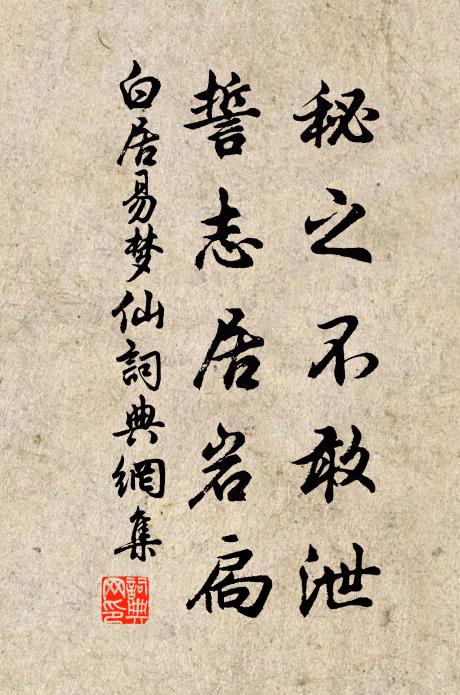 秘之不敢泄
誓志居岩扃
白居易梦仙詞典網集
詞典网印